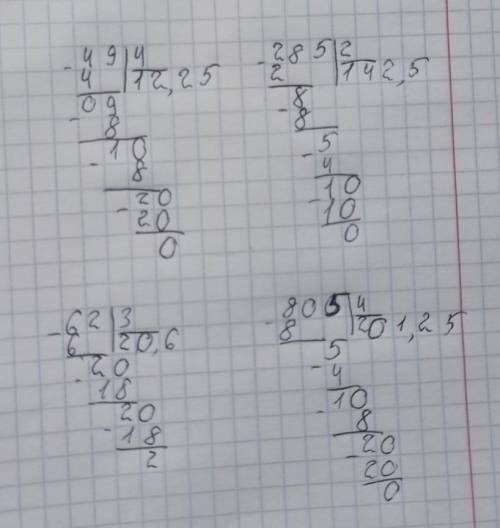 - 49 | 4
4 | 12,25
09
- 8
10
- 8
20
- 20
0
- 285 | 2
2 | 142,5
8
- 8
5
- 4
10
- 10
0
- 62 | 3
6 | 20,6
20
- 18
20
- 18
2
- 805 | 4
8 | 201,25
5
- 4
10
- 8
20
- 20
0